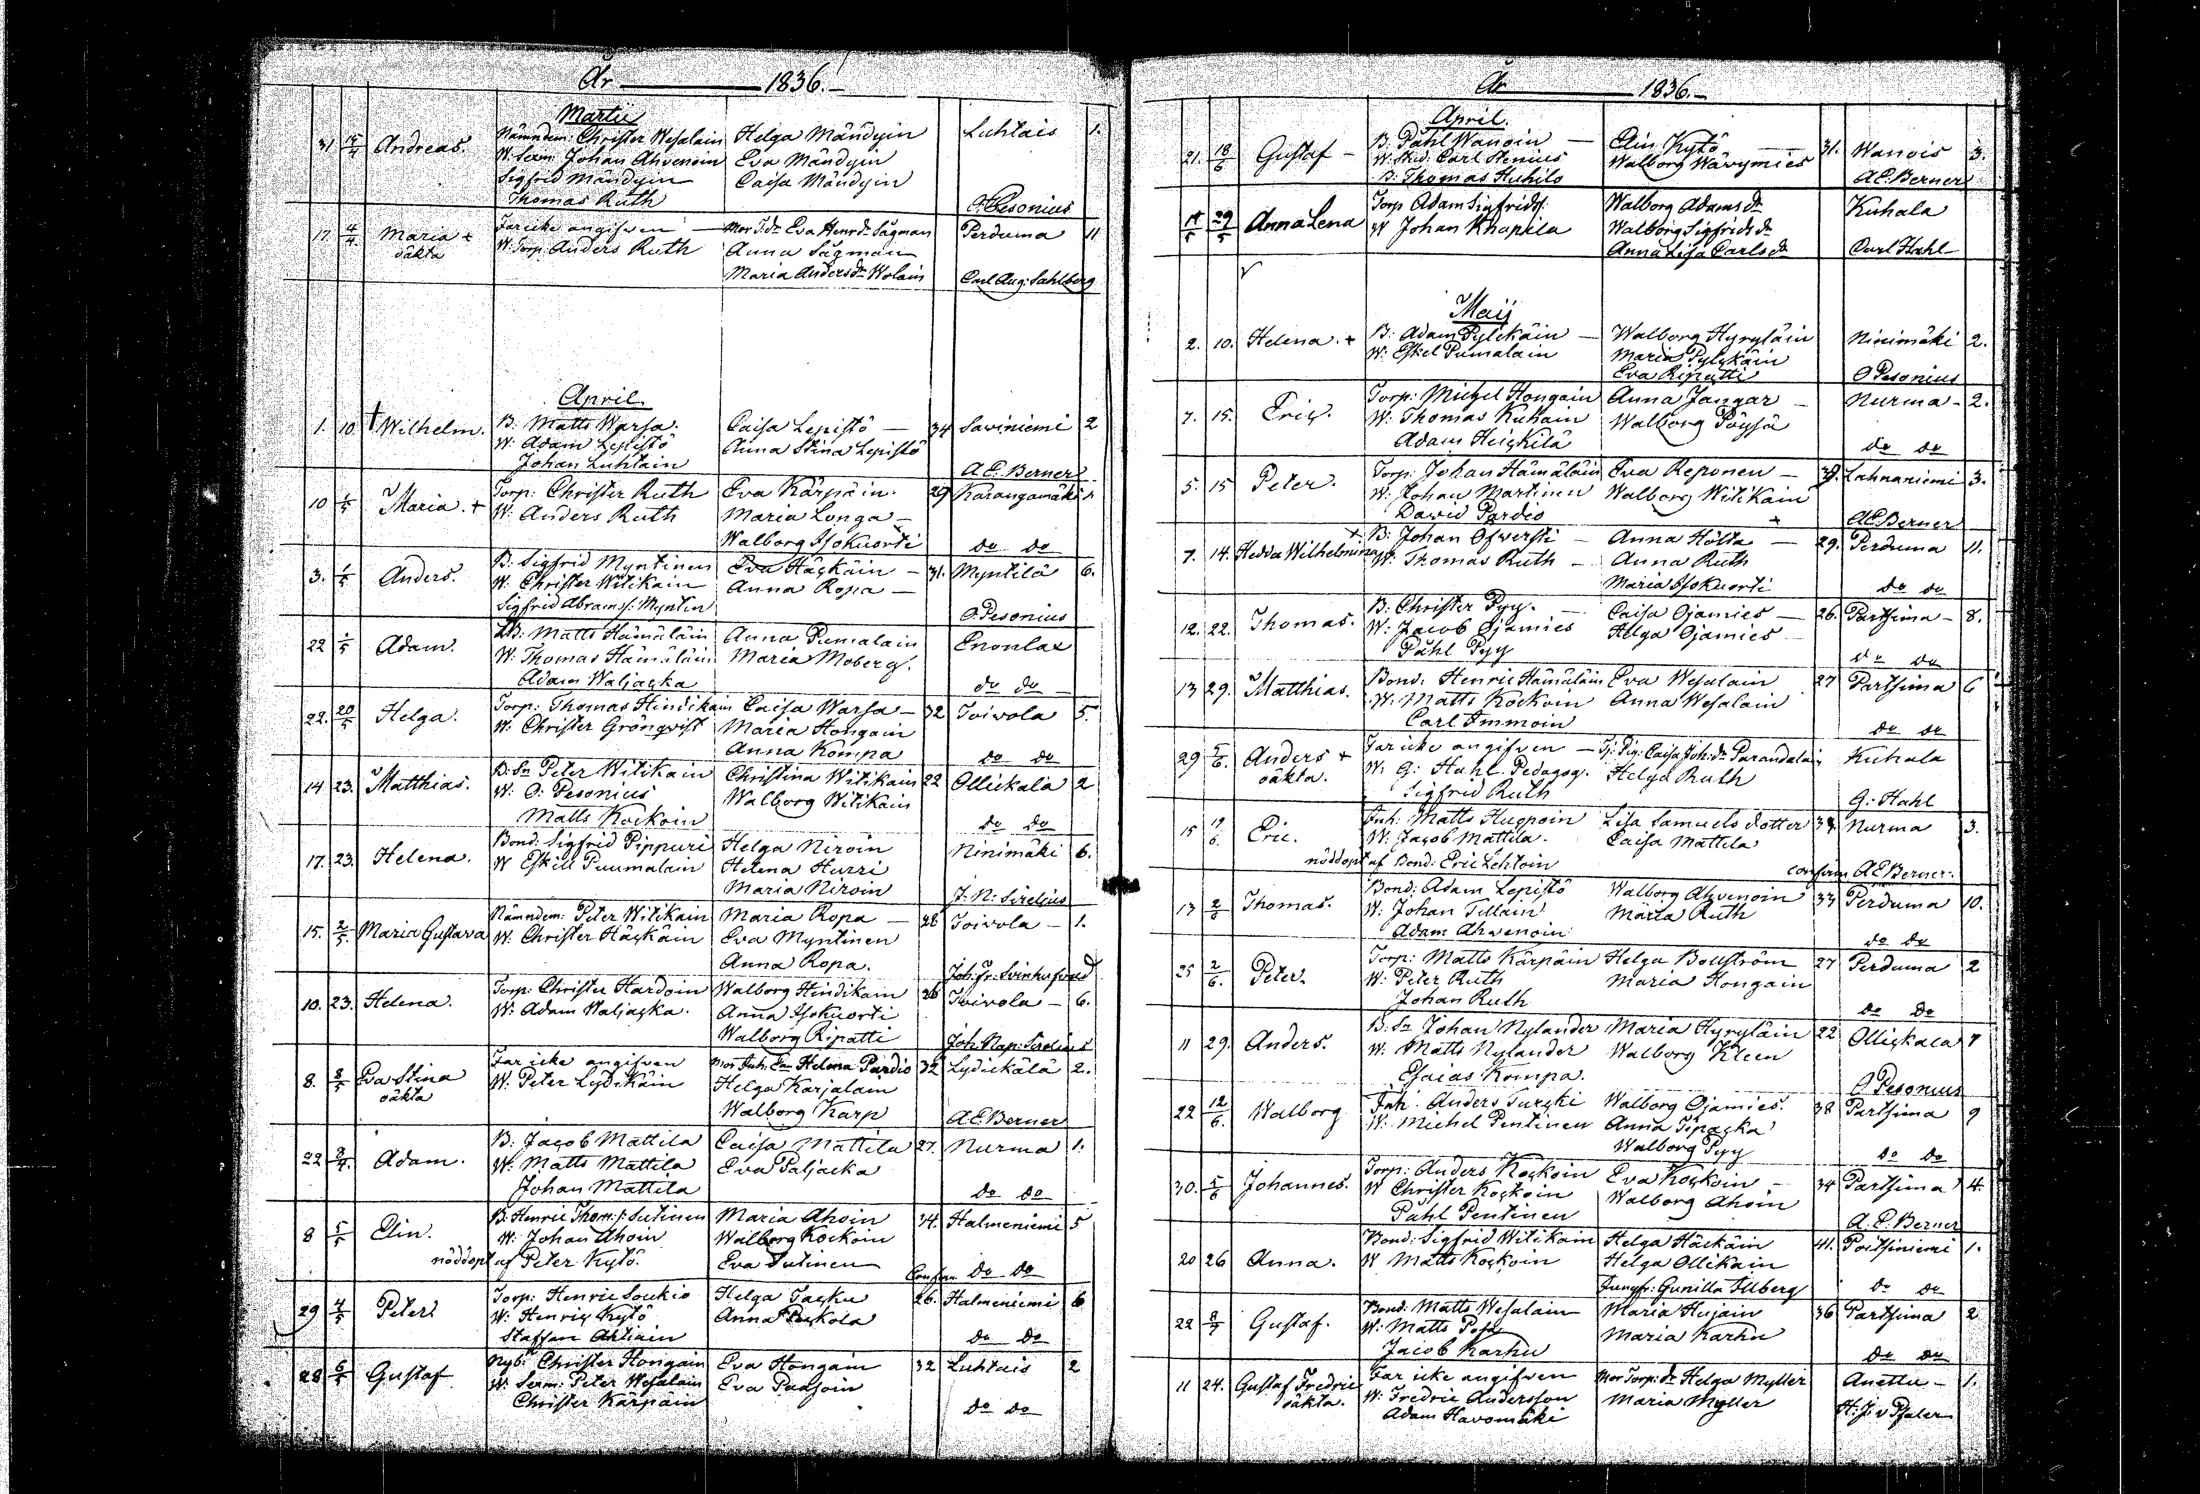 År 1836.
Martii
31 15/4 Andreas. Nämndem: Christer Wesalain Helga Mändyin Luhtais 1.
W. Sexm: Johan Ahvenoin Eva Mändyin
Sigfrid Mändyin Caisa Mändyin
Thomas Ruth O Pesonius
17 4/4 Maria + Far icke angifven Mor I.dr Eva Henr.dr Sägman Perduma 11
oäkta W. Torp. Anders Ruth Anna Sägman
Maria Anders dr Wolain Carl Aug: Sahlberg
April.
1. 10. † Wilhelm. B: Matts Warsa. Caisa Lepistö 34 Saviniemi 2
W: Adam Lepistö Anna Stina Lepistö
Johan Luhtain A E. Berner
10 1/5 Maria. + Torp: Christer Ruth Eva Kärpäin. 29 Karangamäki
W: Anders Ruth Maria Longa
Walborg Isokuorti do do
3. 1/5 Anders. B. Sigfrid Myntinen Eva Häckäin 31. Myntilä 6.
W. Christer Witikain Anna Ropa
Sigfrid Abrams s: Myntin O. Pesonius
22 1/5 Adam. Matts Hämäläin Anna Pumalain Enonlax
W: Thomas Hämäläin Maria Moberg.
Adam Waljacka do do
22. 20/5 Helga. Torp: Thomas Hindikain Caisa Warsa 32 Toivola 5.
W: Christer Grönqvist Maria Hongain
Anna Kompa do do
14 23. Matthias. B: Sn Peter Witikain Christina Witikain 22 Ollickala 2
W: O: Pesonius Walborg Witikain
Matts Kockoin do do
17. 23. Helena. Bond: Sigfrid Pippuri Helga Niroin Ninimäki 6.
W Eskill Puumalain Helena Hurri
Maria Niroin J: N: Sirelius
15. 2/5. Maria Gustava Nämndem: Peter Witikain Maria Ropa 28 Toivola 1.
W: Christer Häckäin Eva Myntinen
Anna Ropa. Joh: Fr: Svinhufvud
10. 23. Helena. Torp: Christer Hardoin Walborg Hindikain 26 Toivola 6.
W: Adam Waljacka. Anna Isokuorti
Walborg Ripatti Joh: Nap: Sirelius
8. 8/5 Eva Stina Far icke angifven Mor Inh: Helena Pardio 32 Lydickälä 2.
oäkta W. Peter Lydikäin Helga Karjalain
Walborg Karp A E Berner
22 Adam. B: Jacob Mattila Caisa Mattila 27. Nurma 1.
W: Matts Mattila Eva Paljacka
Johan Mattila do do
8 5/5 Elin. B: Henric Thom: s: Sutinen Maria Ahoin 34. Halmeniemi 5
W: Johan Ahoin Walborg Kockoin
nöddopt af Peter Kytö. Eva Sutinen Confirm do do
29 4/5 Peter. Torp: Henric Soukio Helga Tacku 26. Halmeniemi 6
W: Henric Kytö Anna Peckola
Staffan Ahtiain do do
28 6/5 Gustaf Nyb: Christer Hongain Eva Hongain 32 Luhtais 2
W. Sexm: Peter Wesalain Eva Paasoin
Christer Kärpäin do do
År 1836.
April.
21. 18/5 Gustaf B: Påhl Wanoin Elin Kytö 31. Wanois 3.
W. Stud: Carl Stenius Walborg Wäyrymies
B: Thomas Huhilo A E. Berner
29/5 Anna Lena Torp Adam Sigfrids s: Walborg Adams dr Kuhala
W Johan Knapila Walborg Sigfrids dr
Anna Lisa Carls dr Carl Hahl
Maij
2. 10. Helena. + B: Adam Pylckäin Walborg Hyryläin Ninimäki 2.
W: Eskel Pumalain Maria Pylckäin
Eva Ripatti O Pesonius
7. 15. Eric. Torp: Michel Hongain Anna Jangar Nurma 2.
W: Thomas Kuhain Walborg Pöysä
Adam Heickilä do do
5. 15 Peter. Torp: Johan Hämäläin Eva Reponen Lahnaniemi 3.
W: Johan Martinen Walborg Witikain
David Pardio A E Berner
7. 14. Hedda Wilhelmina B: Johan Ofversti Anna Hölta 29. Perduma 11.
W: Thomas Ruth Anna Ruth
Maria Isokuorti do do
12. 22. Thomas. B: Christer Pyy. Caisa Ojamies 26. Partsima 8.
W: Jacob Ojamies Helga Ojamies
Påhl Pyy do do
13 29. Matthias. Bond: Henric Hämäläin Eva Wesalain 27 Partsima 6
W: Matts Kockoin Anna Wesalain
Carl Immoin do do
29 5/6. Anders + Far icke angifven Tj: Pig: Caisa Joh: dr Parandalain Kuhala
oäkta. W: G: Hahl Pedagog. Helga Ruth
Sigfrid Ruth G: Hahl
15 19/6. Eric. Inh: Matts Hugpoin Lisa Samuels dotter Nurma 3.
W: Jacob Mattila. Caisa Mattila
nöddopt af Bond: Eric Lehtoin confirm A E Berner.
13 2/6 Thomas. Bond: Adam Lepistö Walborg Ahvenoin 33 Perduma 10.
W: Johan Tillain Märta Ruth
Adam Ahvenoin do do
25 2/6. Peter. Torp: Matts Kärpäin Helga Bouström 27 Perduma 2
W: Peter Ruth Maria Hongain
Johan Ruth do do
11 29. Anders. B: Sn Johan Nylander Maria Hyryläin 22 Ollickala 7
W: Matts Nylander Walborg Kleen
Esaias Kompa. O Pesonius
22 12/6. Walborg Inh: Anders Turcki Walborg Ojamies. 38 Partsima 9
W: Michel Pentinen Anna Tipacka
Walborg Pyy do do
30. 5/6 Johannes. Torp: Anders Kockoin Eva Kockoin 34 Partsima 4.
W Christer Kockoin Walborg Ahoin
Påhl Pentinen A. E. Berner
20 26 Anna. Bond: Sigfrid Witikain Helga Häckäin 41. Poitsiniemi 1.
W Matts Kockoin Helga Ollikain
Jungfr: Gunilla Illberg do do
22 Gustaf. Bond: Matts Wesalain Maria Hujain 36 Partsima 2
W: Matts Maria Karhu
Jacob Karhu do do
11 24. Gustaf Fredric Far icke angifven Mor Torp: dr Helga Myller Anettu 1.
oäkta. W: Fredric Andersson Maria Myller
Adam Havomäki